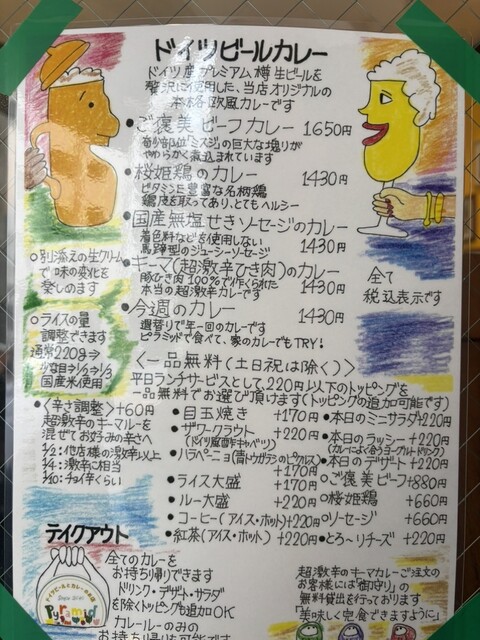 ドイツビールカレー
ドイツ産プレミアム樽生ビールを
贅沢に使用した、当店オリジナルの
本格欧風カレーです
・ご褒美ビーフカレー 1650円
希少部位"ミスジ"の巨大な塊りが
やわらかく煮込まれています
・桜姫鶏のカレー 1430円
ビタミンE豊富な名柄鶏
鶏皮を取ってあり、とてもヘルシー
・国産無塩せきソーセージのカレー
着色料などを使用しない
馬蹄型のジューシーソーセージ 1430円
・キーマ(超激辛ひき肉)のカレー
豚ひき肉100%で作くられた
本当の超激辛カレーです 1430円
・今週のカレー 1430円
週替りで年一回のカレーです
ピラミッドで食べて、家のカレーでもTRY!
○別い添えの生クリーム
で味の変化を
楽しめます
全て
税込表示です
○ライスの量
調整できます
通常220g⇒
少な目⇒1/2⇒1/3
国産米使用
<一品無料(土日祝は除く)>
平日ランチサービスとして220円以下のトッピングを
一品無料でお選び頂けます(トッピングの追加可能です)
・<辛さ調整>+60円
超激辛のキーマルーを
混ぜてお好みの辛さへ
1/2:他店様の激辛以上
1/4:激辛に相当
1/10:チョイ辛くらい
・目玉焼き +170円
・ザワークラウト +220円
(ドイツ風酢漬キャベツ)
・ハラペーニョ(青トウガラシのピクルス)
+170円
・ライス大盛 +170円
・ルー大盛 +220円
・コーヒー(アイス・ホット)+220円
・紅茶(アイス・ホット) +220円
・本日のミニサラダ+220円
・本日のラッシー +220円
(カレーによく合うヨーグルトドリンク)
・本日のデザート +220円
・ご褒美ビーフ+880円
・桜姫鶏 +660円
・ソーセージ +660円
・とろ〜りチーズ +220円
テイクアウト
全てのカレーを
お持ち帰りできます
ドリンク・デザート・サラダ
を除くトッピングも追加OK
カレールーのみの
お持ち帰りも可能です
Pyramid
超激辛のキーマカレーご注文の
お客様には「御守り」の
無料貸出を行っております
「美味しく完食できますように」